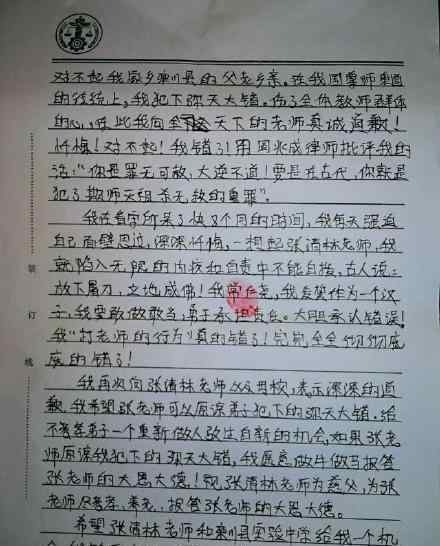 对不起我家乡栾川县的父老乡亲。在我国尊师重道
的传统上，我犯下弥天大错。伤了全体教师群体
的心，在此我向全天下的老师真诚道歉！
忏悔！对不起！我错了！用周兆成律师批评我的
话：“你是罪无可赦，大逆不道！要是在古代，你就是
犯了欺师灭祖杀无赦的重罪”。
我在看守所呆了快8个月的时间，我每天强迫
自己面壁思过，深深忏悔，一想起张清林老师，我
就陷入无限的内疚和自责中不能自拔，古人说：
放下屠刀，立地成佛！我常仁尧，我发誓作为一个汉
子，我要敢做敢当，勇于承担责任。大胆承认错误！
我“打老师的行为”真的错了！完完全全彻彻底
底的错了！
我再次向张清林老师以及母校，表示深深的道
歉。我希望张老师可以原谅弟子犯下的弥天大错。给
不孝弟子一个重新做人改过自新的机会，如果张老
师原谅我犯下的弥天大错，我愿意做牛做马报答
张老师的大恩大德！视张清林老师为慈父，为张
老师尽孝、养老、报答张老师的大恩大德。
希望张清林老师和栾川县实验中学给我一个机
装
订
线